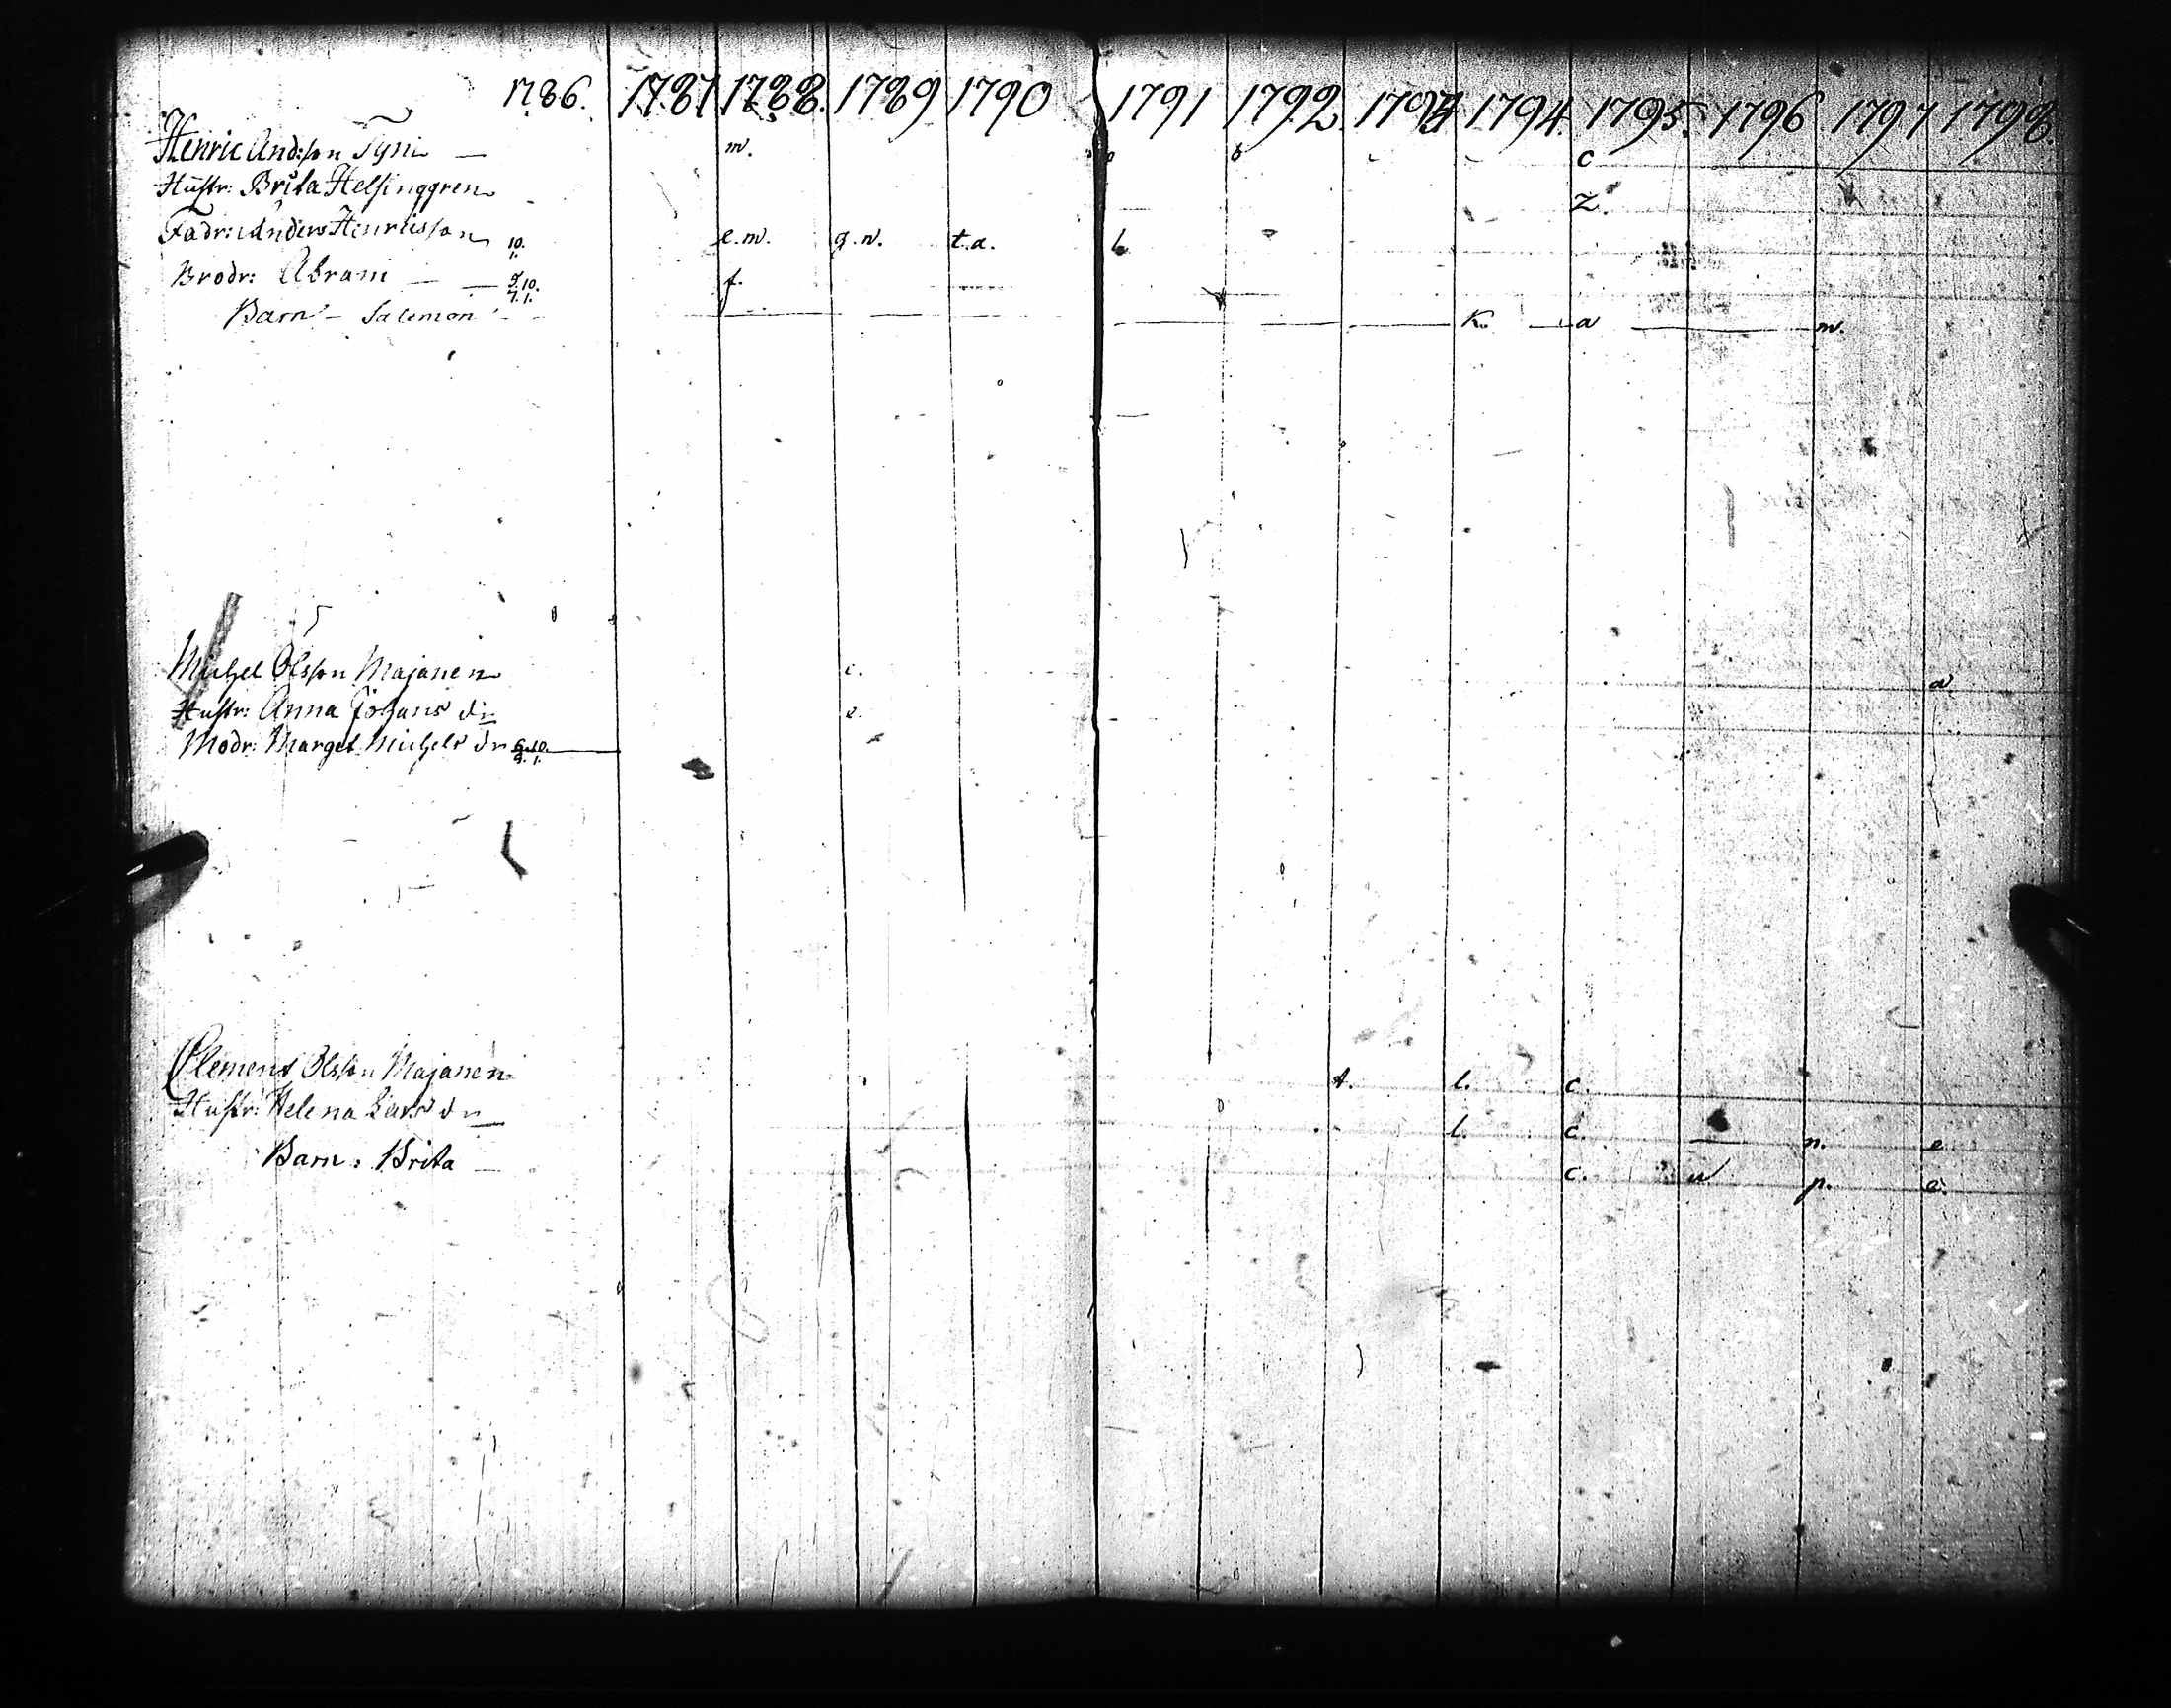 1786. 1787 1788. 1789 1790 1791 1792 1793 1794 1795. 1796 1797 1798.
Henric And:sson Tyni — m. b c
Hustr: Brita Helsinggren Z.
Fadr: Anders Henricsson 10. 1. e.m. g.n. t.a. b
Brodr: Abram — — 5.10. 7.1. f.
Barn — Salemon K. a m.
Michel Olsson Majanen c. a
Hustr: Anna Johans dr e.
Modr: Marget Michels dr 6.10. 9.1.
Clemens Olsson Majanen t. l. c.
Hustr: Helena Lars dr l. c. n. e
Barn: Brita — c. u p. e.